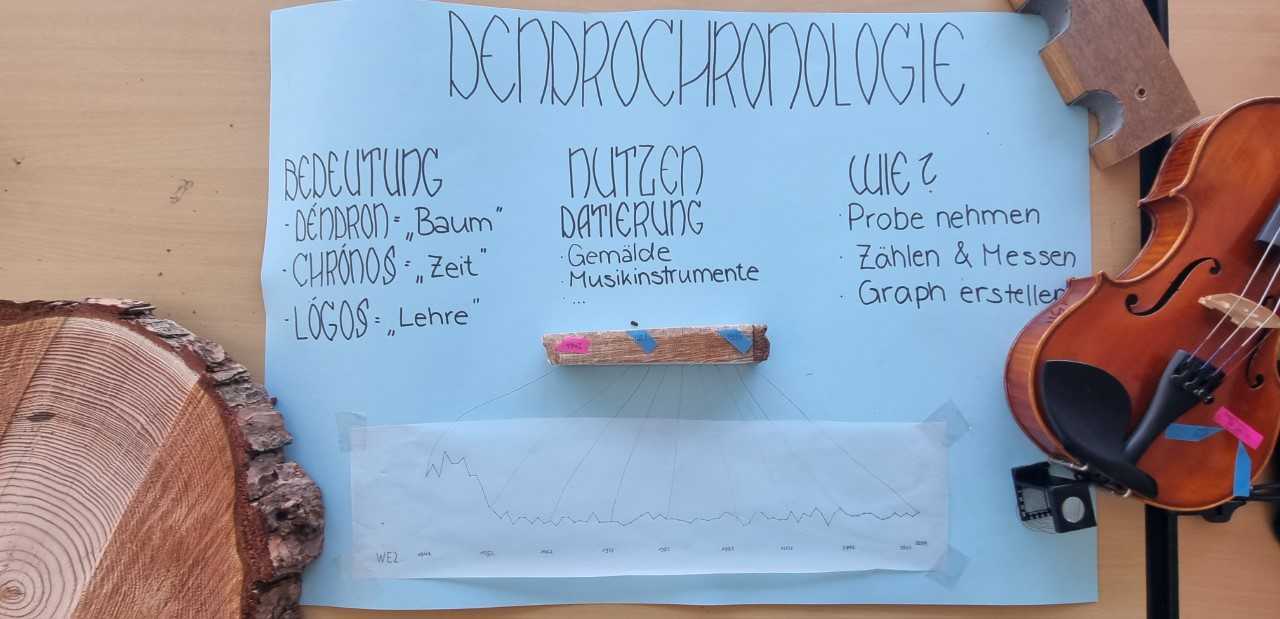 DENDROCHRONOLOGIE
BEDEUTUNG
- DÉNDRON = „Baum"
- CHRÓNOS = „Zeit"
- LÓGOS = „Lehre"
NUTZEN
DATIERUNG
· Gemälde
· Musikinstrumente
· ...
WIE?
· Probe nehmen
· Zählen & Messen
· Graph erstellen
WE2